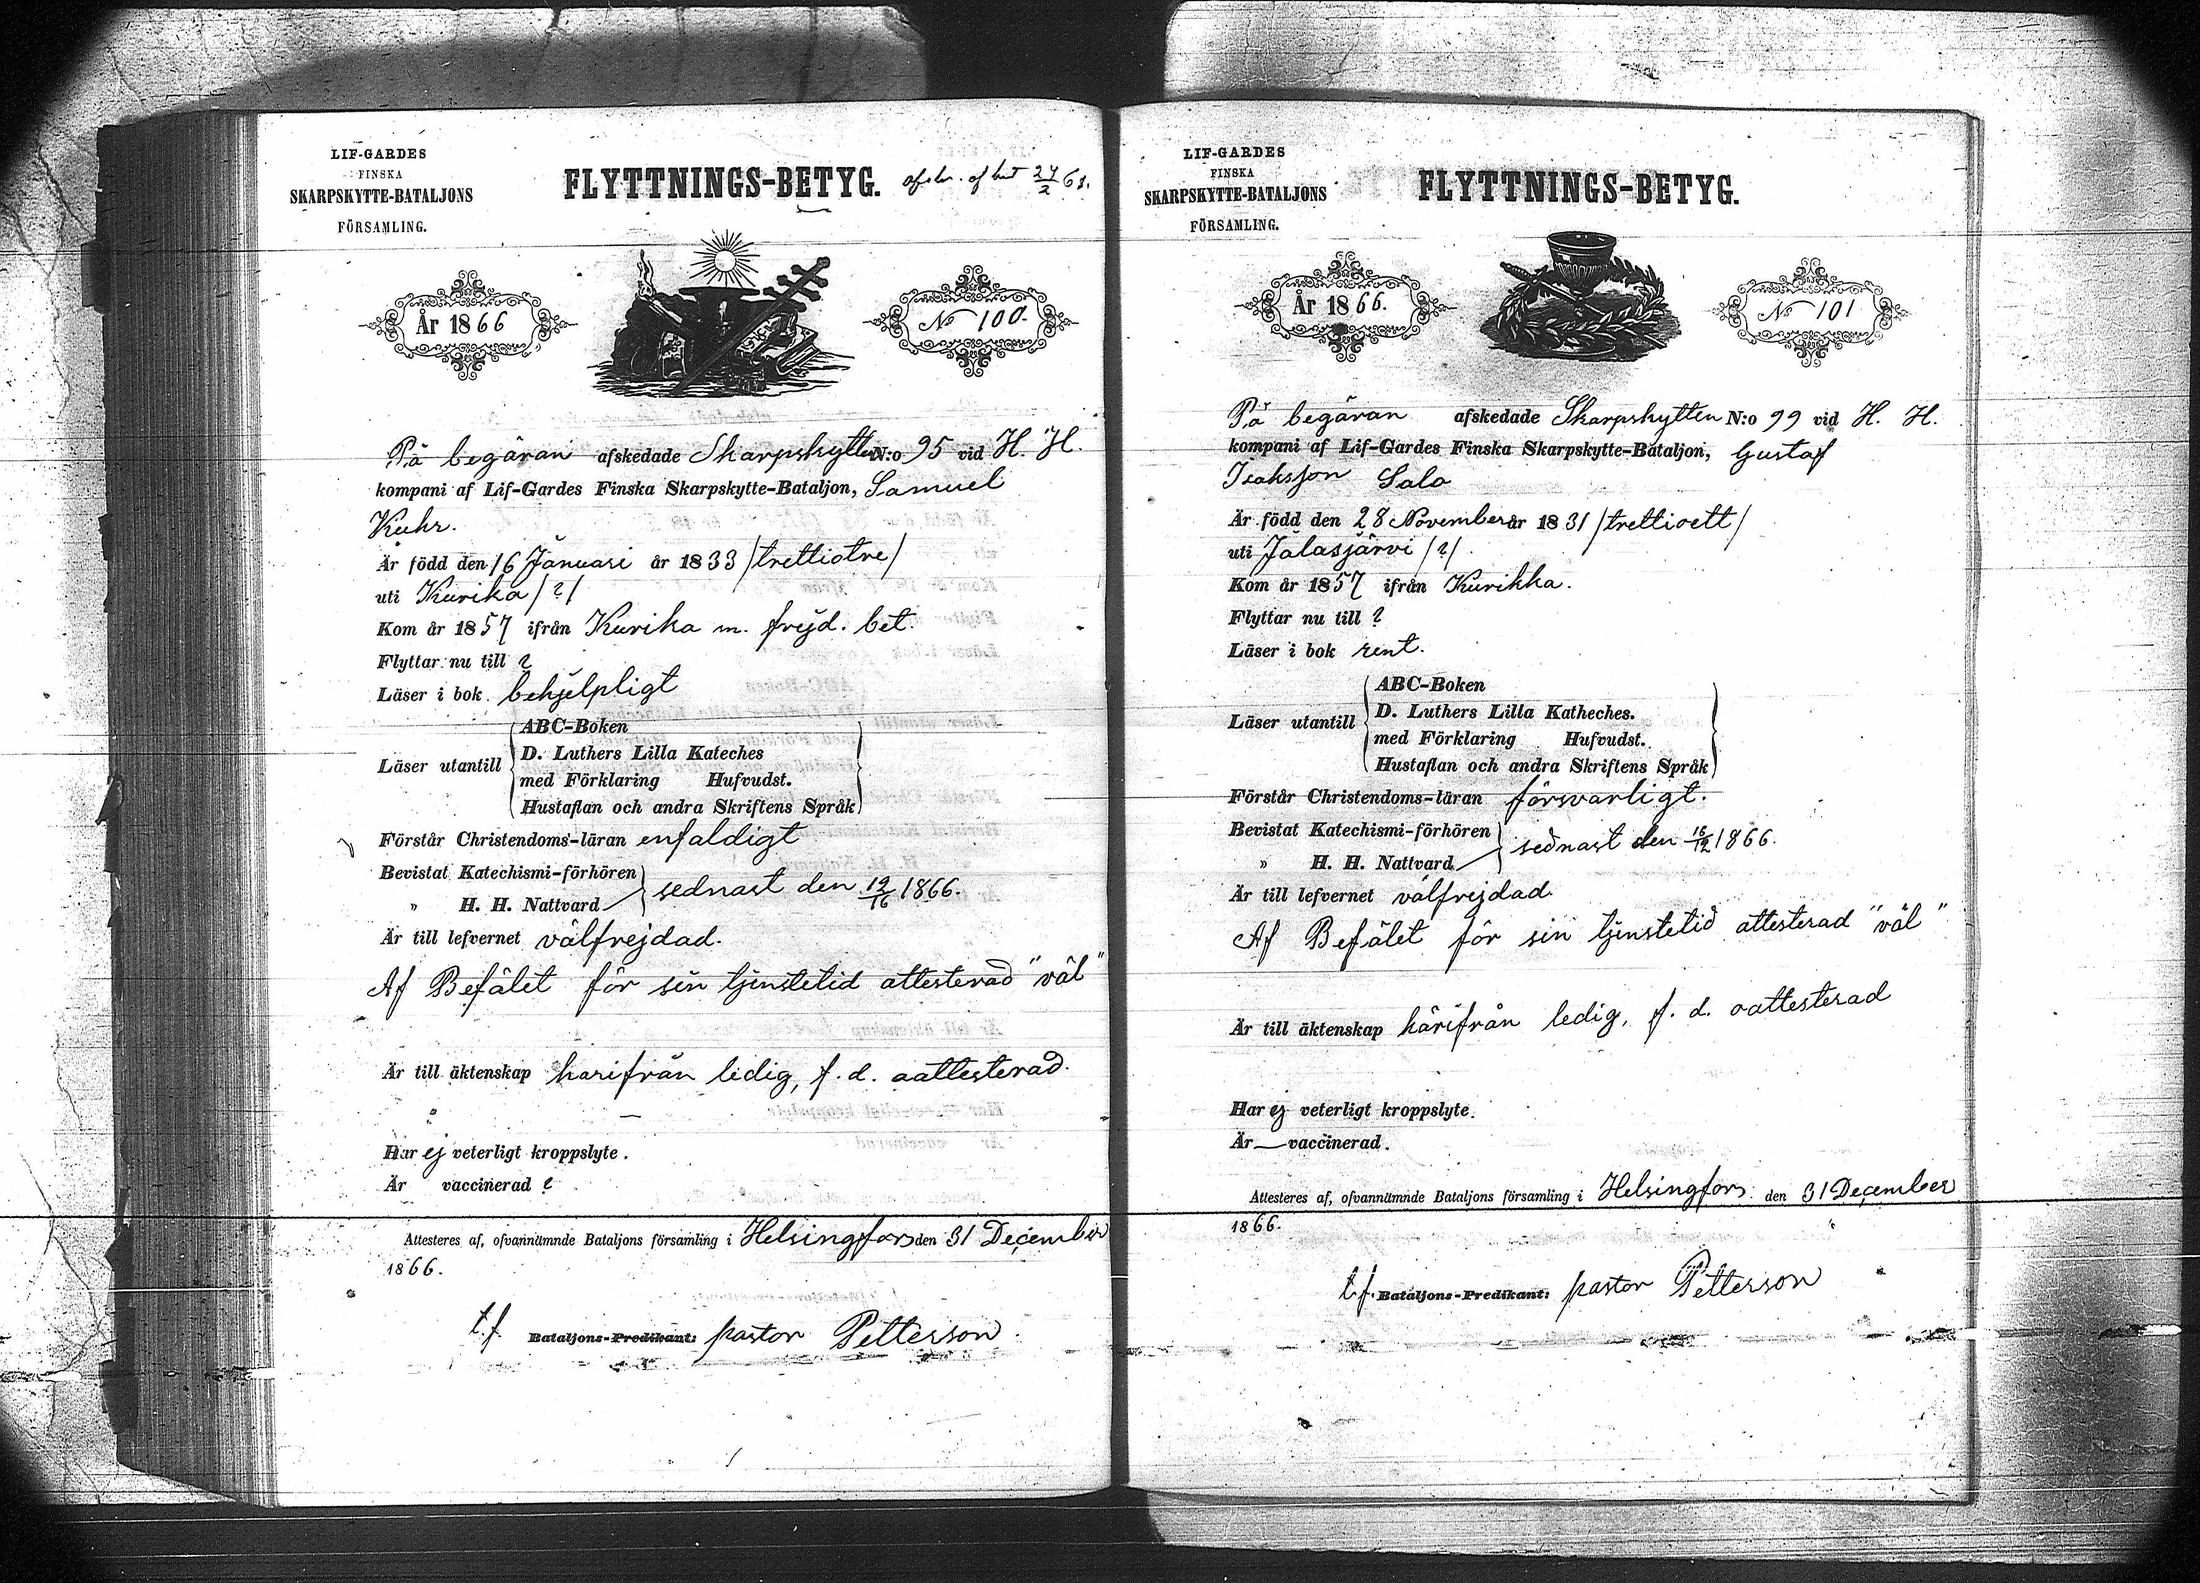 LIF-GARDES
FINSKA
SKARPSKYTTE-BATALJONS
FÖRSAMLING.
FLYTTNINGS-BETYG.
År 1866
No 100.
På begäran afskedade Skarpskytten N:o 95 vid H. H.
kompani af Lif-Gardes Finska Skarpskytte-Bataljon, Samuel
Kuhr.
Är född den 16 Januari år 1833 /trettiotre/
uti Kurika /?/
Kom år 1857 ifrån Kurika m. frejd. bet.
Flyttar nu till ?
Läser i bok behjelpligt
Läser utantill
ABC-Boken
D. Luthers Lilla Kateches
med Förklaring Hufvudst.
Hustaflan och andra Skriftens Språk
Förstår Christendoms-läran enfaldigt
Bevistat Katechismi-förhören
" H. H. Nattvard
sednast den 12/16 1866.
Är till lefvernet välfrejdad.
Af Befälet för sin tjenstetid attesterad "väl"
Är till äktenskap härifrån ledig, f. d. oattesterad.
Har ej veterligt kroppslyte.
Är vaccinerad ?
Attesteres af, ofvannämnde Bataljons församling i Helsingfors den 31 December
1866.
t.f. Bataljons-Predikant: pastor Petterson.
LIF-GARDES
FINSKA
SKARPSKYTTE-BATALJONS
FÖRSAMLING.
FLYTTNINGS-BETYG.
År 1866.
No 101
På begäran afskedade Skarpskytten N:o 99 vid H. H.
kompani af Lif-Gardes Finska Skarpskytte-Bataljon, Gustaf
Isaksson Salo
Är född den 28 November år 1831 /trettioett/
uti Jalasjärvi /?/.
Kom år 1857 ifrån Kurikka.
Flyttar nu till ?
Läser i bok rent.
Läser utantill
ABC-Boken
D. Luthers Lilla Katheches.
med Förklaring Hufvudst.
Hustaflan och andra Skriftens Språk
Förstår Christendoms-läran försvarligt.
Bevistat Katechismi-förhören
" H. H. Nattvard
sednast den 16/12 1866.
Är till lefvernet välfrejdad.
Af Befälet för sin tjenstetid attesterad "väl"
Är till äktenskap härifrån ledig, f. d. oattesterad
Har ej veterligt kroppslyte.
Är — vaccinerad.
Attesteres af, ofvannämnde Bataljons församling i Helsingfors den 31 December
1866.
t.f. Bataljons-Predikant: pastor Petterson